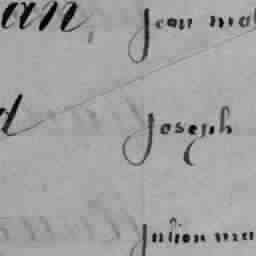 an, jean mat
d joseph
julien mat